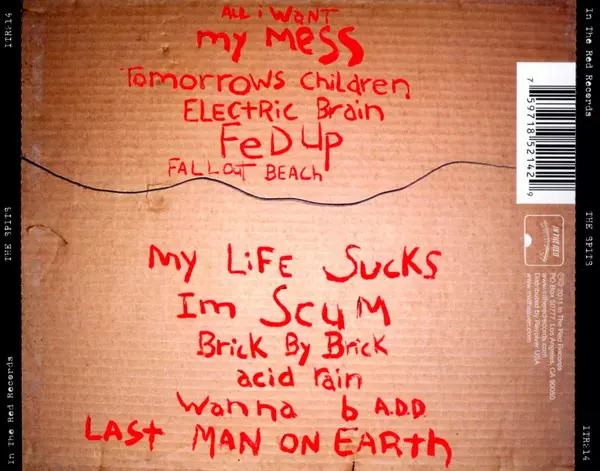 ALL i WANT
my MESS
TOmORROWS CHiLdREN
ELECTRiC BRain
FeD UP
FALLOUT BEACH
MY LiFE SUCKS
Im SCUM
BRicK By BRicK
acid rain
Wanna b A.D.D.
LAST MAN ON EARTH
ITR214
THE SPITS
In The Red Records
In The Red Records
THE SPITS
ITR214
7 59718 52142 9
IN THE RED
℗© 2011 In The Red Records
PO Box 50777, Los Angeles, CA 90050
www.intheredrecords.com
Distributed by Revolver USA
www.midheaven.com